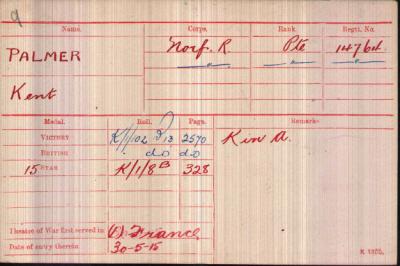 Name. Corps. Rank. Regtl. No.
PALMER Norf. R. Pte 14764
Kent
Medal. Roll. Page. Remarks
VICTORY K/1/102 B13 2570 K in A.
BRITISH do do
15 STAR K/1/8B 328
Theatre of War first served in (1) France
Date of entry therein 30-5-15
K 1380.